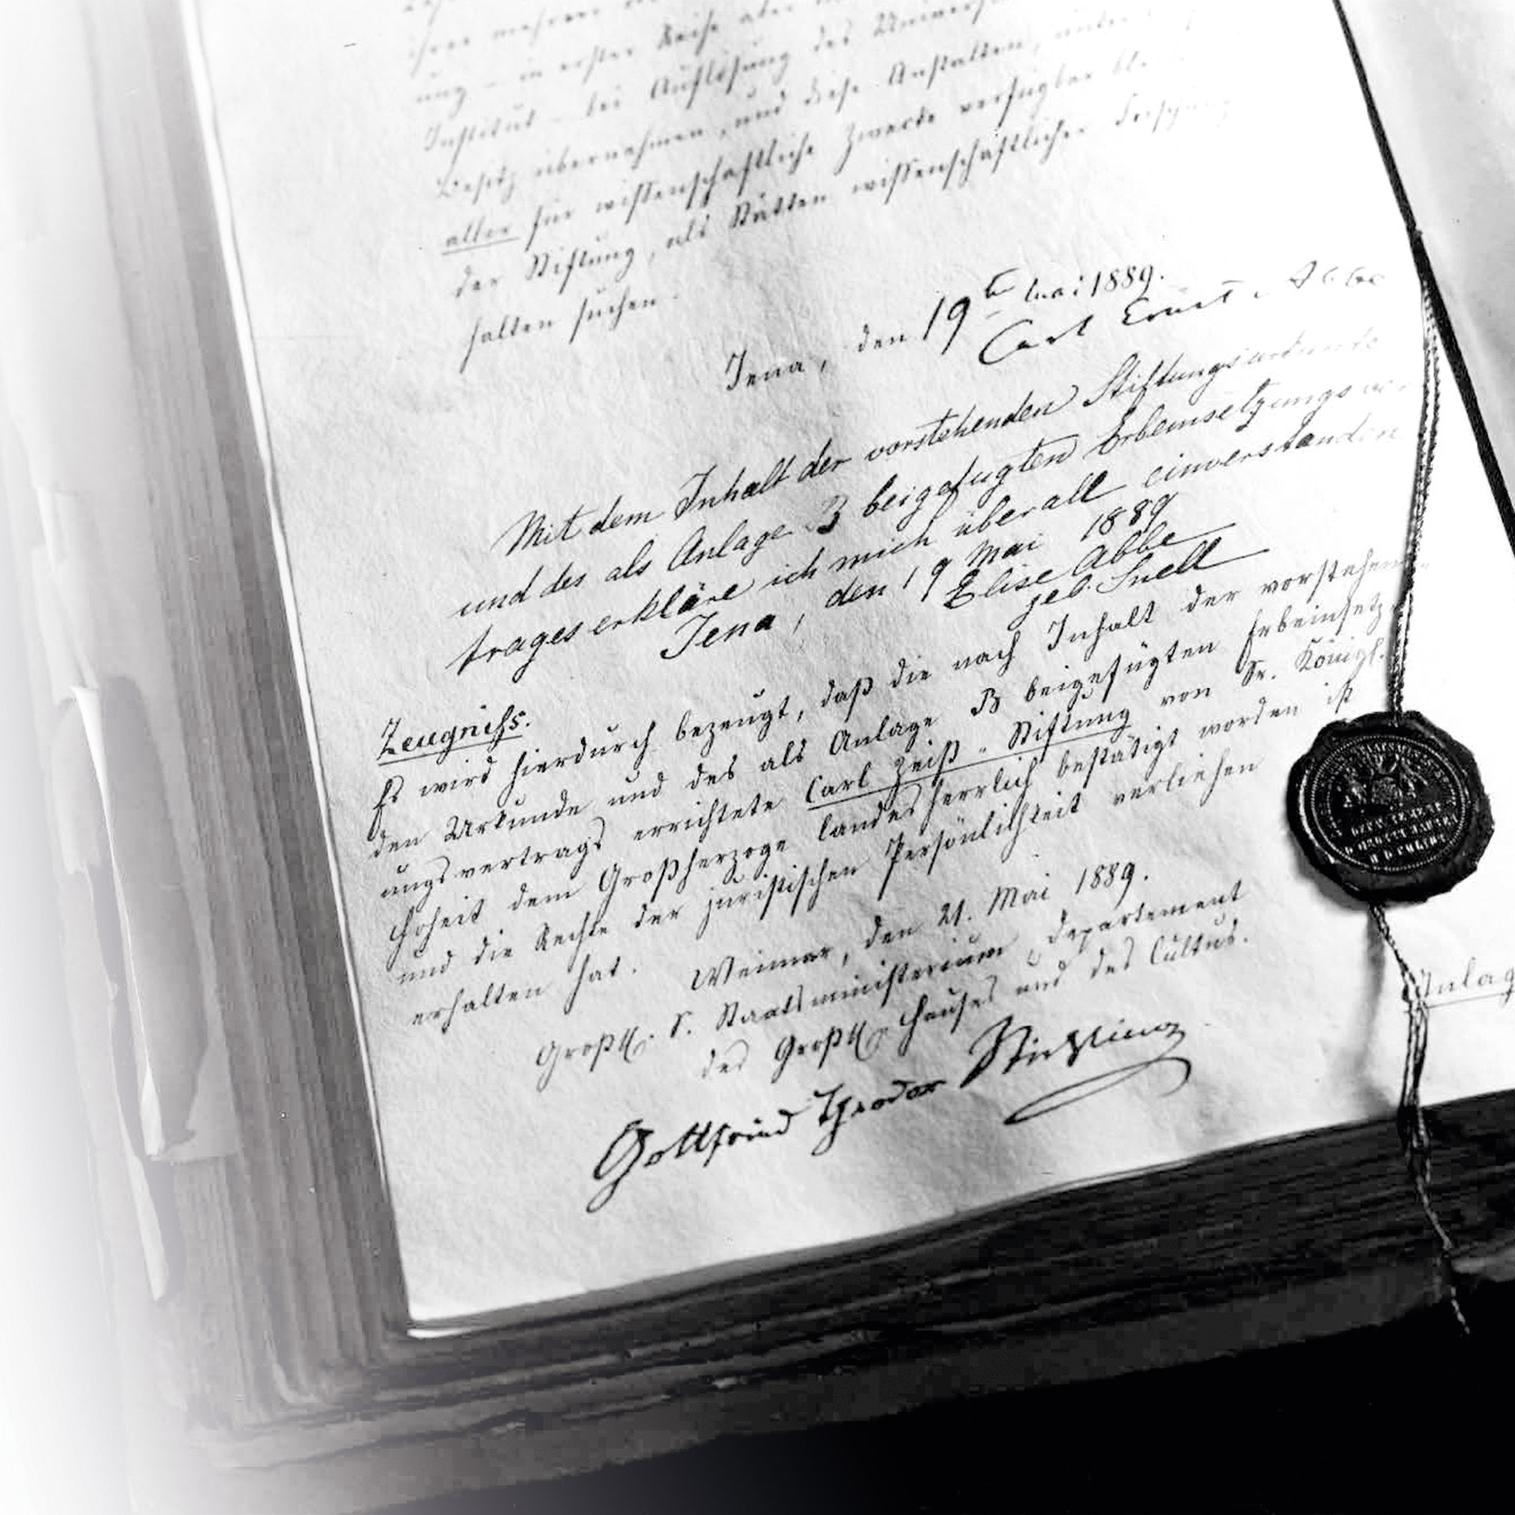 ung – in erster Reihe aber
Institut – bei Auflösung des
Besitz übernehmen, und diese Anstalten, unter
aller für wissenschaftliche Zwecke verfügbar
der Stiftung, als Stätten wissenschaftlicher
halten suchen.
Jena, den 19ten Mai 1889.
Carl Ernst Abbe
Mit dem Inhalt der vorstehenden Stiftungsurkunde
und des als Anlage B beigefügten Erbeinsetzungsver-
trages erkläre ich mich überall einverstanden
Jena, den 19 Mai 1889
Elise Abbe
geb. Snell
Zeugniß.
Es wird hierdurch bezeugt, daß die nach Inhalt der vorstehen-
den Urkunde und des als Anlage B beigefügten Erbeinsetz-
ungsvertrags errichtete Carl Zeiß-Stiftung von Sr. Königl.
Hoheit dem Großherzoge landesherrlich bestätigt worden ist
und die Rechte der juristischen Persönlichkeit verliehen
erhalten hat.
Weimar, den 21. Mai 1889.
Großh. S. Staatsministerium, Departement
des Großh. Hauses und des Cultus.
Gottfried Theodor Stichling
Anlag